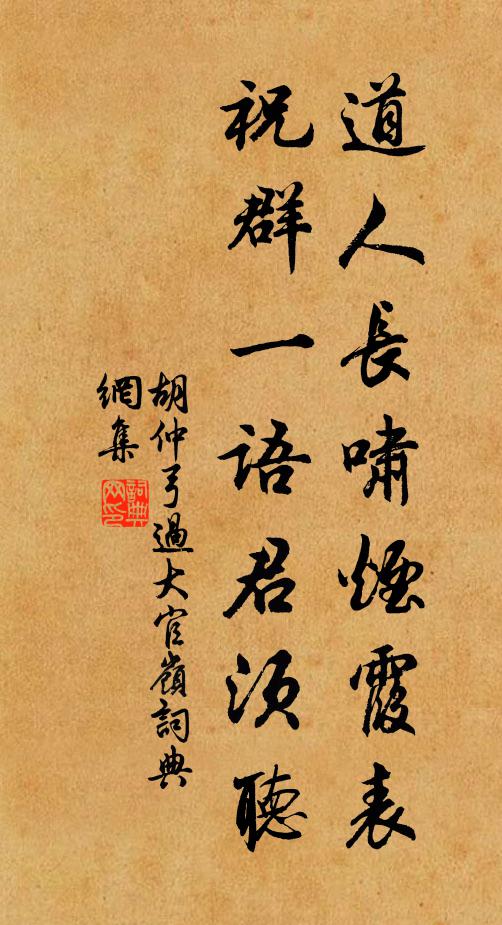 道人長嘯煙霞表
祝群一語君須聽
胡仲弓過大官嶺詞典
網集
詞典
网印